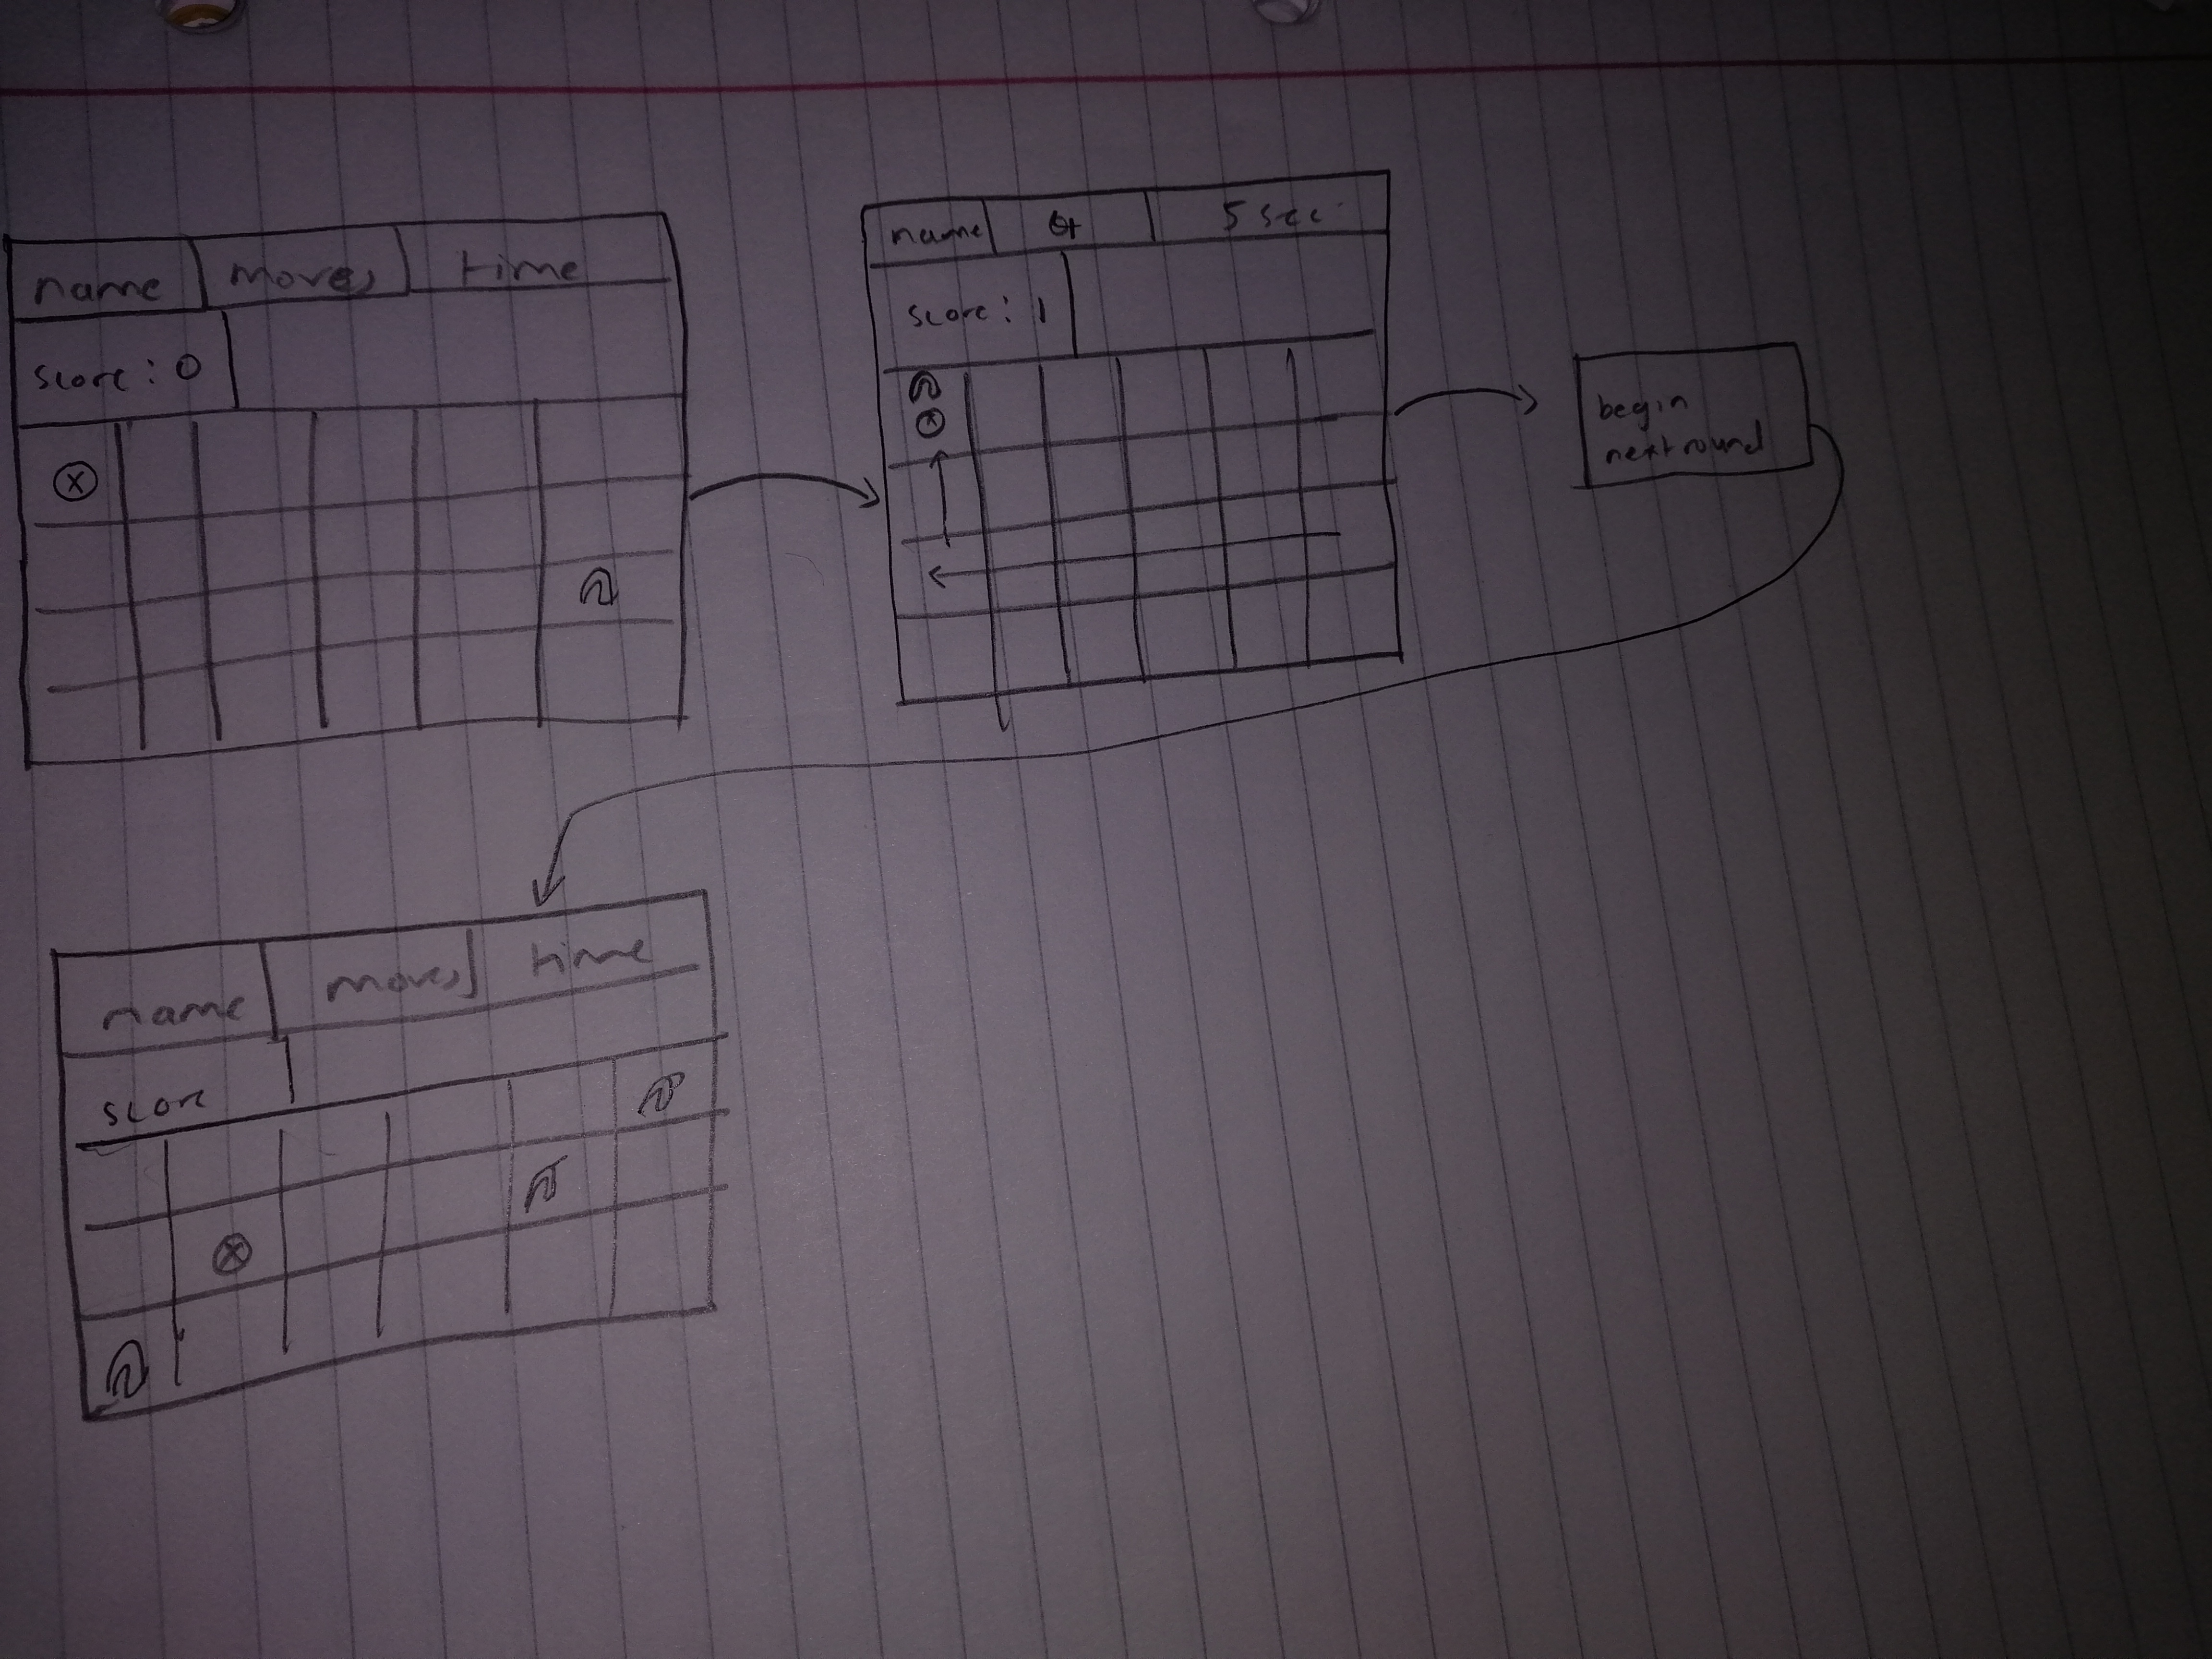 name moves time
score: 0
name 5 sec
score: 1
begin
next round
name moves time
score